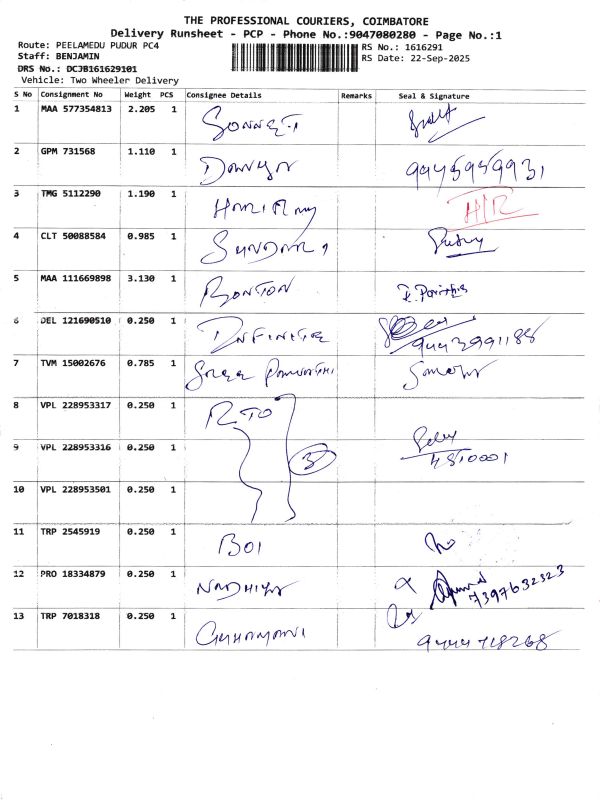 THE PROFESSIONAL COURIERS, COIMBATORE
Delivery Runsheet - PCP - Phone No.:9047080280 - Page No.:1
Route: PEELAMEDU PUDUR PC4
RS No.: 1616291
Staff: BENJAMIN
RS Date: 22-Sep-2025
DRS No.: DCJB161629101
Vehicle: Two Wheeler Delivery
S No Consignment No Weight PCS Consignee Details Remarks Seal & Signature
1 MAA 577354813 2.205 1
2 GPM 731568 1.110 1 9945959931
3 TMG 5112290 1.190 1 H/R
4 CLT 50088584 0.985 1 SUNDAR
5 MAA 111669898 3.130 1 BONTON
6 DEL 121690510 0.250 1 INFINITE 9443991188
7 TVM 15002676 0.785 1
8 VPL 228953317 0.250 1 RTO
9 VPL 228953316 0.250 1 3 4810001
10 VPL 228953501 0.250 1
11 TRP 2545919 0.250 1 BOI
12 PRO 18334879 0.250 1 7397632323
13 TRP 7018318 0.250 1 9444718268